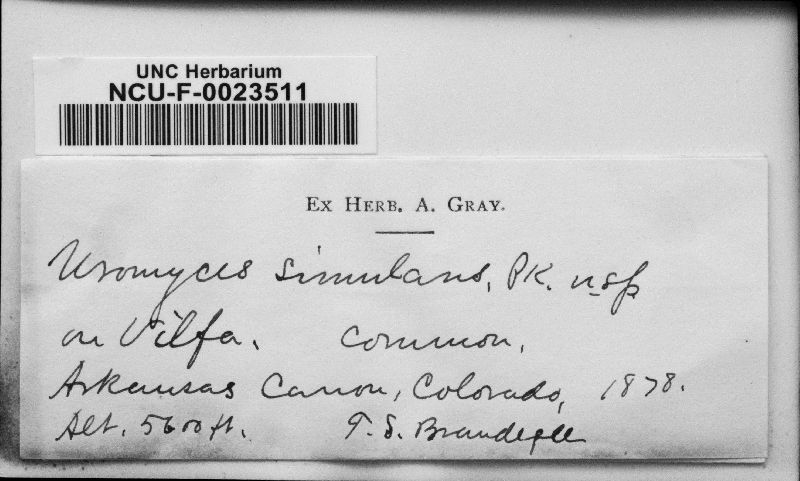 UNC Herbarium
NCU-F-0023511
Ex Herb. A. Gray.
Uromyces simulans, Pk. n sp
on Vilfa. Common,
Arkansas Canon, Colorado, 1878.
Alt. 5600 ft. T. S. Brandegee